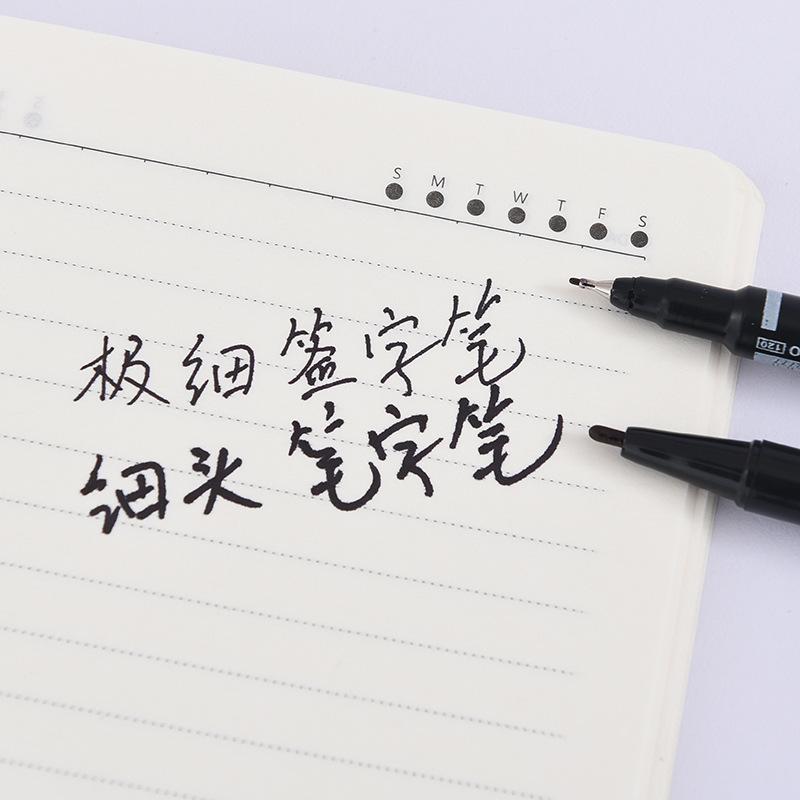 S M T W T F S
120
极细签字笔
细头笔字笔